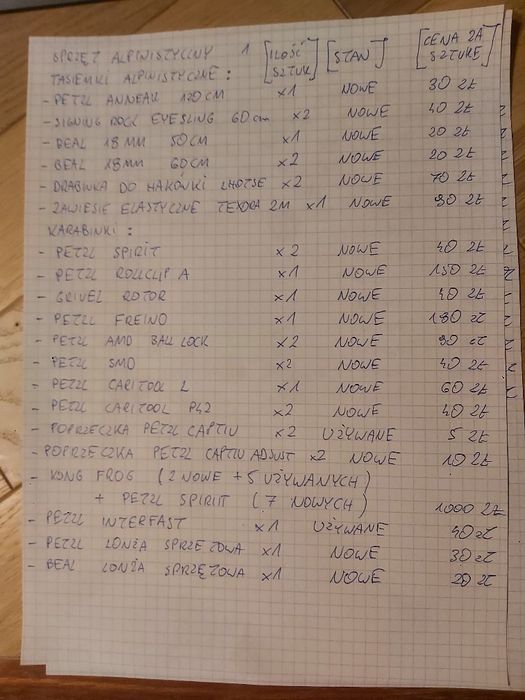 SPRZĘT ALPINISTYCZNY 1 [ILOŚĆ SZTUK] [STAN] [CENA ZA SZTUKĘ]
TASIEMKI ALPINISTYCZNE:
- PETZL ANNEAU 120 CM x1 NOWE 30 ZŁ
- SIGNING ROCK EYESLING 60 cm x2 NOWE 40 ZŁ
- BEAL 18 MM 50 CM x1 NOWE 20 ZŁ
- BEAL 18 MM 60 CM x2 NOWE 20 ZŁ
- DRABINKA DO HAKÓWKI LHOTSE x2 NOWE 70 ZŁ
- ZAWIESIE ELASTYCZNE TEXORA 2M x1 NOWE 90 ZŁ
KARABINKI:
- PETZL SPIRIT x2 NOWE 40 ZŁ
- PETZL ROLLCLIP A x1 NOWE 150 ZŁ
- GRIVEL ROTOR x1 NOWE 40 ZŁ
- PETZL FREINO x1 NOWE 190 ZŁ
- PETZL AMD BALL LOCK x2 NOWE 90 ZŁ
- PETZL SMD x2 NOWE 40 ZŁ
- PETZL CARITOOL L x1 NOWE 60 ZŁ
- PETZL CARITOOL P42 x2 NOWE 40 ZŁ
- POPRZECZKA PETZL CAPTIV x2 UŻYWANE 5 ZŁ
- POPRZECZKA PETZL CAPTIV ADJUST x2 NOWE 10 ZŁ
- KONG FROG (2 NOWE + 5 UŻYWANYCH)
+ PETZL SPIRIT (7 NOWYCH) } 1000 ZŁ
- PETZL INTERFAST x1 UŻYWANE 40 ZŁ
- PETZL LONŻA SPRZĘTOWA x1 NOWE 30 ZŁ
- BEAL LONŻA SPRZĘTOWA x1 NOWE 20 ZŁ